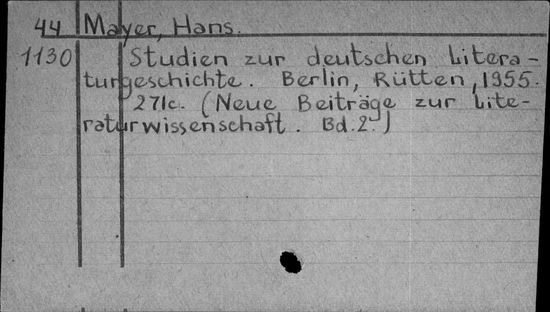 44 Mayer, Hans.
1130 Studien zur deutschen Litera-
turgeschichte. Berlin, Rütten, 1955.
271c. (Neue Beiträge zur Lite-
raturwissenschaft. Bd.2.)